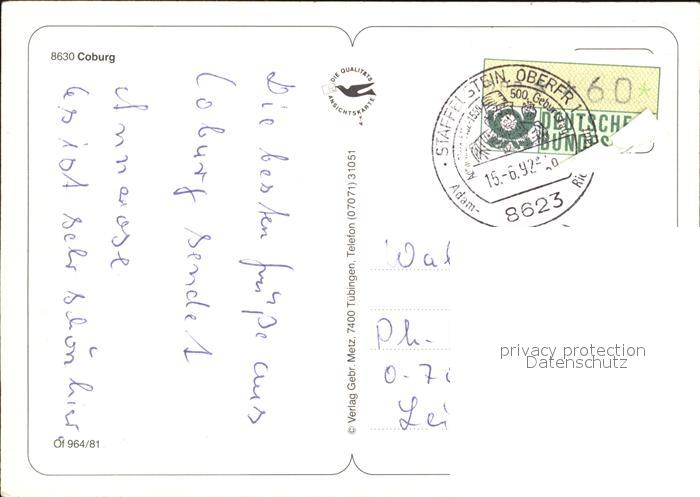 8630 Coburg
Die besten Grüße aus
Coburg sendet
Annarose
Es ist sehr schön hier.
Of 964/81
DIE QUALITÄTS
ANSICHTSKARTE
© Verlag Gebr. Metz, 7400 Tübingen, Telefon (07071) 31051
60
DEUTSCHE
BUNDES
STAFFELSTEIN, OBERFR 1
500. Geburtstag
15.-6.92
Adam-
8623
Wal
Ph.-
O-70
Lei
privacy protection
Datenschutz